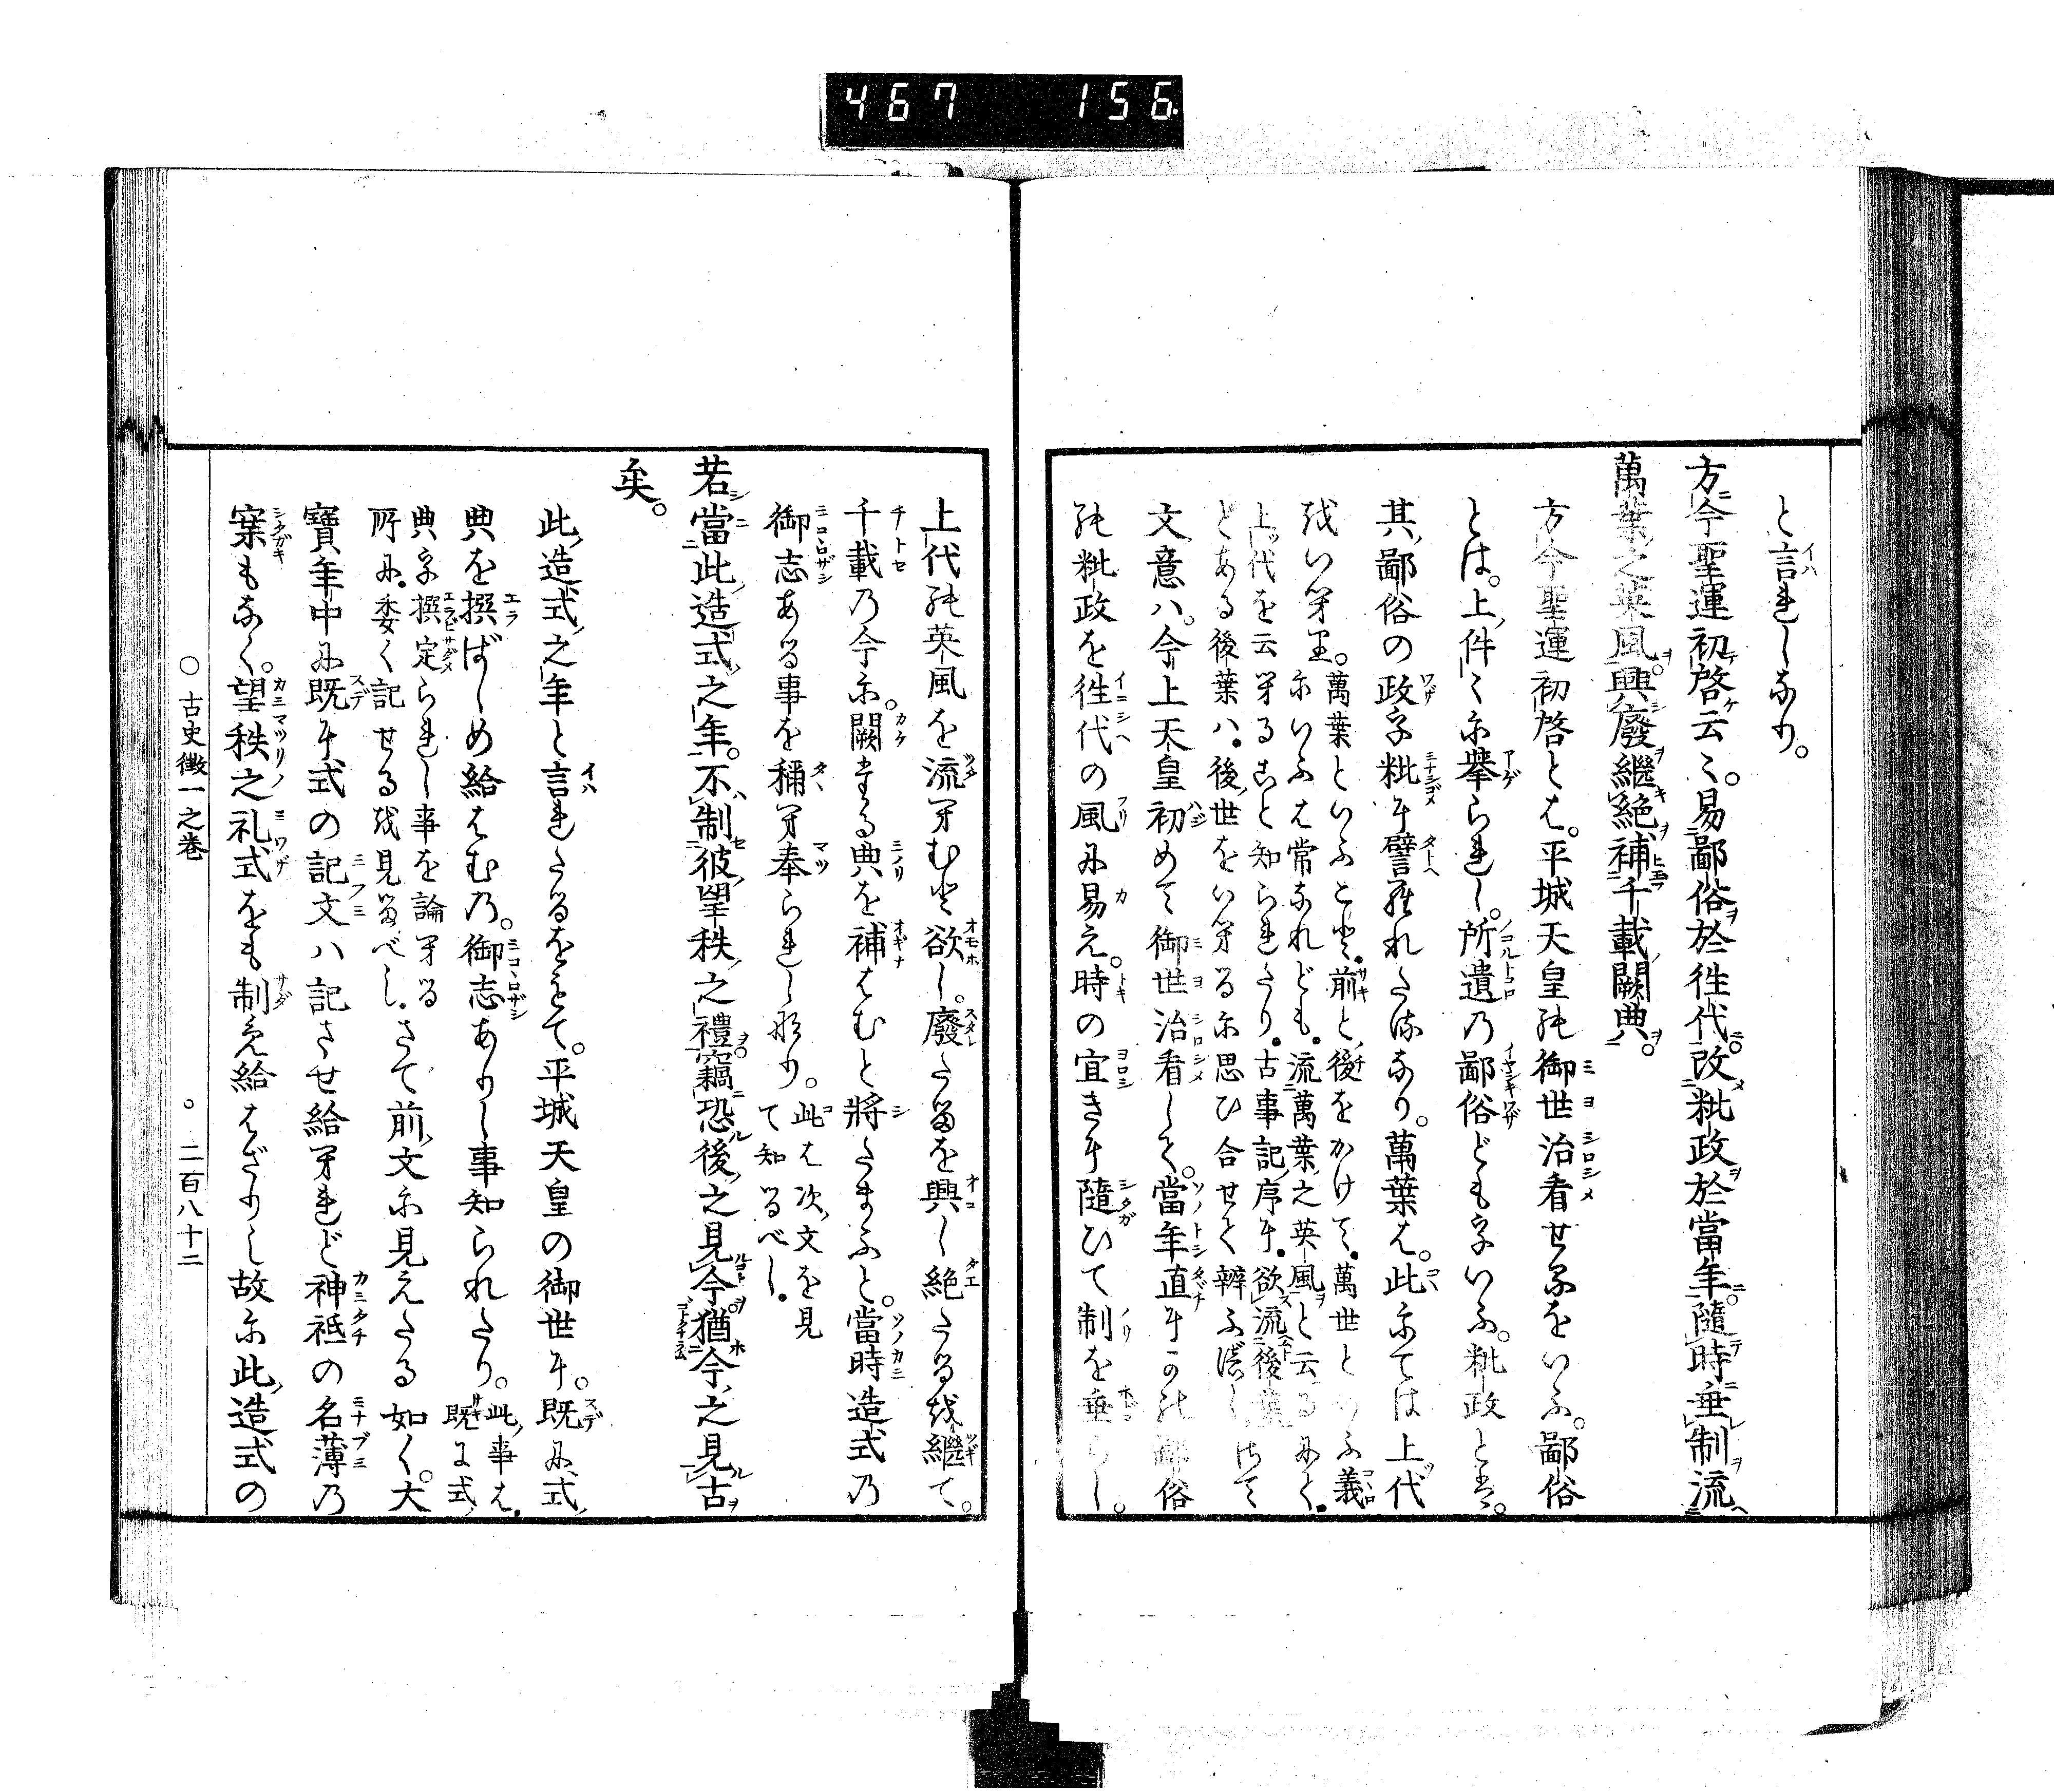 467 156
と言れしなり。
方今聖運初啓云々。易鄙俗於徃代。改粃政於當年。隨時垂制流
萬葉之英風。興廢繼絶補千載闕典。
方今聖運初啓とは。平城天皇の御世治看せるをいふ。鄙俗
とは。上件々に擧られし。所遺の鄙俗どもをいふ。粃政とは。
其鄙俗の政を粃に譬られたるなり。萬葉は。此にては上代
をいへり。萬葉といふこと。前と後をかけて。萬世といふ義
にいふは常なれども。流萬葉之英風と云るにて。
上代を云へること知られたり。古事記序に。欲流後葉
とある後葉ハ。後世をいへるに思ひ合せて辨ふべし。
文意ハ。今上天皇初めて御世治看して。當年直にかの鄙俗
の粃政を徃代の風に易え。時の宜きに隨ひて制を垂らし。
上代の英風を流へむと欲し。廢たるを興し絶たるを繼て。
千載の今に。闕たる典を補はむと將たまふと。當時造式の
御志ある事を稱へ奉られしなり。此は次文を見
て知るべし。
若當此造式之年。不制彼望秩之禮。竊恐後之見今猶今之見古
矣。
此造式之年と言れたるをもて。平城天皇の御世に。既に式
典を撰ばしめ給はむの。御志ありし事知られたり。此事は。
既に式
典を撰定られし事を論へる
所に。委く記せるを見るべし。さて前文に見えたる如く。大
寶年中に既に式の記文ハ記させ給へれど神祇の名薄の
案もなく。望秩之礼式をも制め給はざりし故に此造式の
○ 古史徴一之巻 ○ 二百八十二